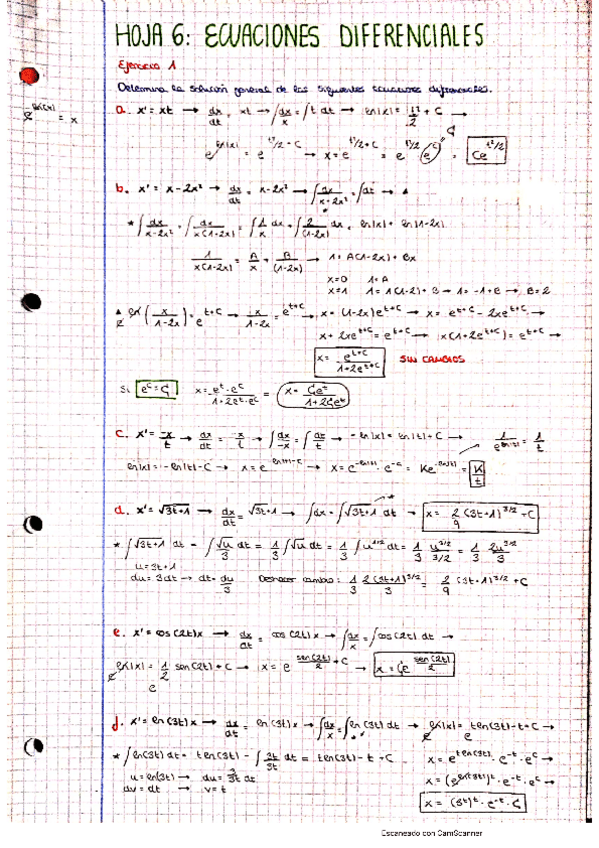 HOJA 6: ECUACIONES DIFERENCIALES
Ejercicio 1
Determina la solución general de las siguientes ecuaciones diferenciales.
e^ln(x) = x
a. x' = xt → dx/dt = xt → ∫dx/x = ∫t dt → ln|x| = t²/2 + C →
e^ln|x| = e^t²/2 + C → x = e^t²/2+C = e^t²/2 · e^C = Ce^t²/2
b. x' = x - 2x² → dx/dt = x - 2x² → ∫dx/x-2x² = ∫dt → ▲
* ∫dx/x-2x² = ∫dx/x(1-2x) = ∫1/x dx + ∫2/(1-2x) dx = ln|x| + ln|1-2x|
1/x(1-2x) = A/x + B/(1-2x) → 1 = A(1-2x) + Bx
x=0 1=A
x=1 1 = 1(1-2) + B → 1 = -1+B → B=2
▲ e^ln(x/1-2x) = e^t+C → x/1-2x = e^t+C → x = (1-2x)e^t+C → x = e^t+C - 2xe^t+C →
x + 2xe^t+C = e^t+C → x(1+2e^t+C) = e^t+C →
x = e^t+C/1+2e^t+C SIN CAMBIOS
Si e^C = C x = e^t·e^C/1+2e^t·e^C = x = Ce^t/1+2Ce^t
c. x' = -x/t → dx/dt = -x/t → ∫dx/-x = ∫dt/t → -ln|x| = ln|t| + C → 1/e^ln|t| = 1/t
ln|x| = -ln|t| - C → x = e^-ln|t|-C → x = e^-ln|t| · e^-C = Ke^-ln|t| = K/t
d. x' = √3t+1 → dx/dt = √3t+1 → ∫dx = ∫√3t+1 dt → x = 2/9 (3t+1)^3/2 + C
* ∫√3t+1 dt = ∫√u dt/3 = 1/3 ∫√u dt = 1/3 ∫u^1/2 dt = 1/3 u^3/2/3/2 = 1/3 2u^3/2/3
u = 3t+1
du = 3dt → dt = du/3 Deshacer cambio: 1/3 2(3t+1)^3/2/3 = 2/9 (3t+1)^3/2 + C
e. x' = cos(2t)x → dx/dt = cos(2t)x → ∫dx/x = ∫cos(2t) dt →
e^ln|x| = e^1/2 sen(2t) + C → x = e^sen(2t)/2 + C → x = Ce^sen(2t)/2
f. x' = ln(3t)x → dx/dt = ln(3t)x → ∫dx/x = ∫ln(3t) dt → e^ln|x| = e^tln(3t)-t+C →
* ∫ln(3t) dt = tln(3t) - ∫3t/3t dt = tln(3t) - t + C x = e^tln(3t) · e^-t · e^C →
u = ln(3t) → du = 3/3t dt x = (e^ln(3t))^t · e^-t · e^C →
dv = dt → v = t
x = (3t)^t · e^-t · C
Escaneado con CamScanner